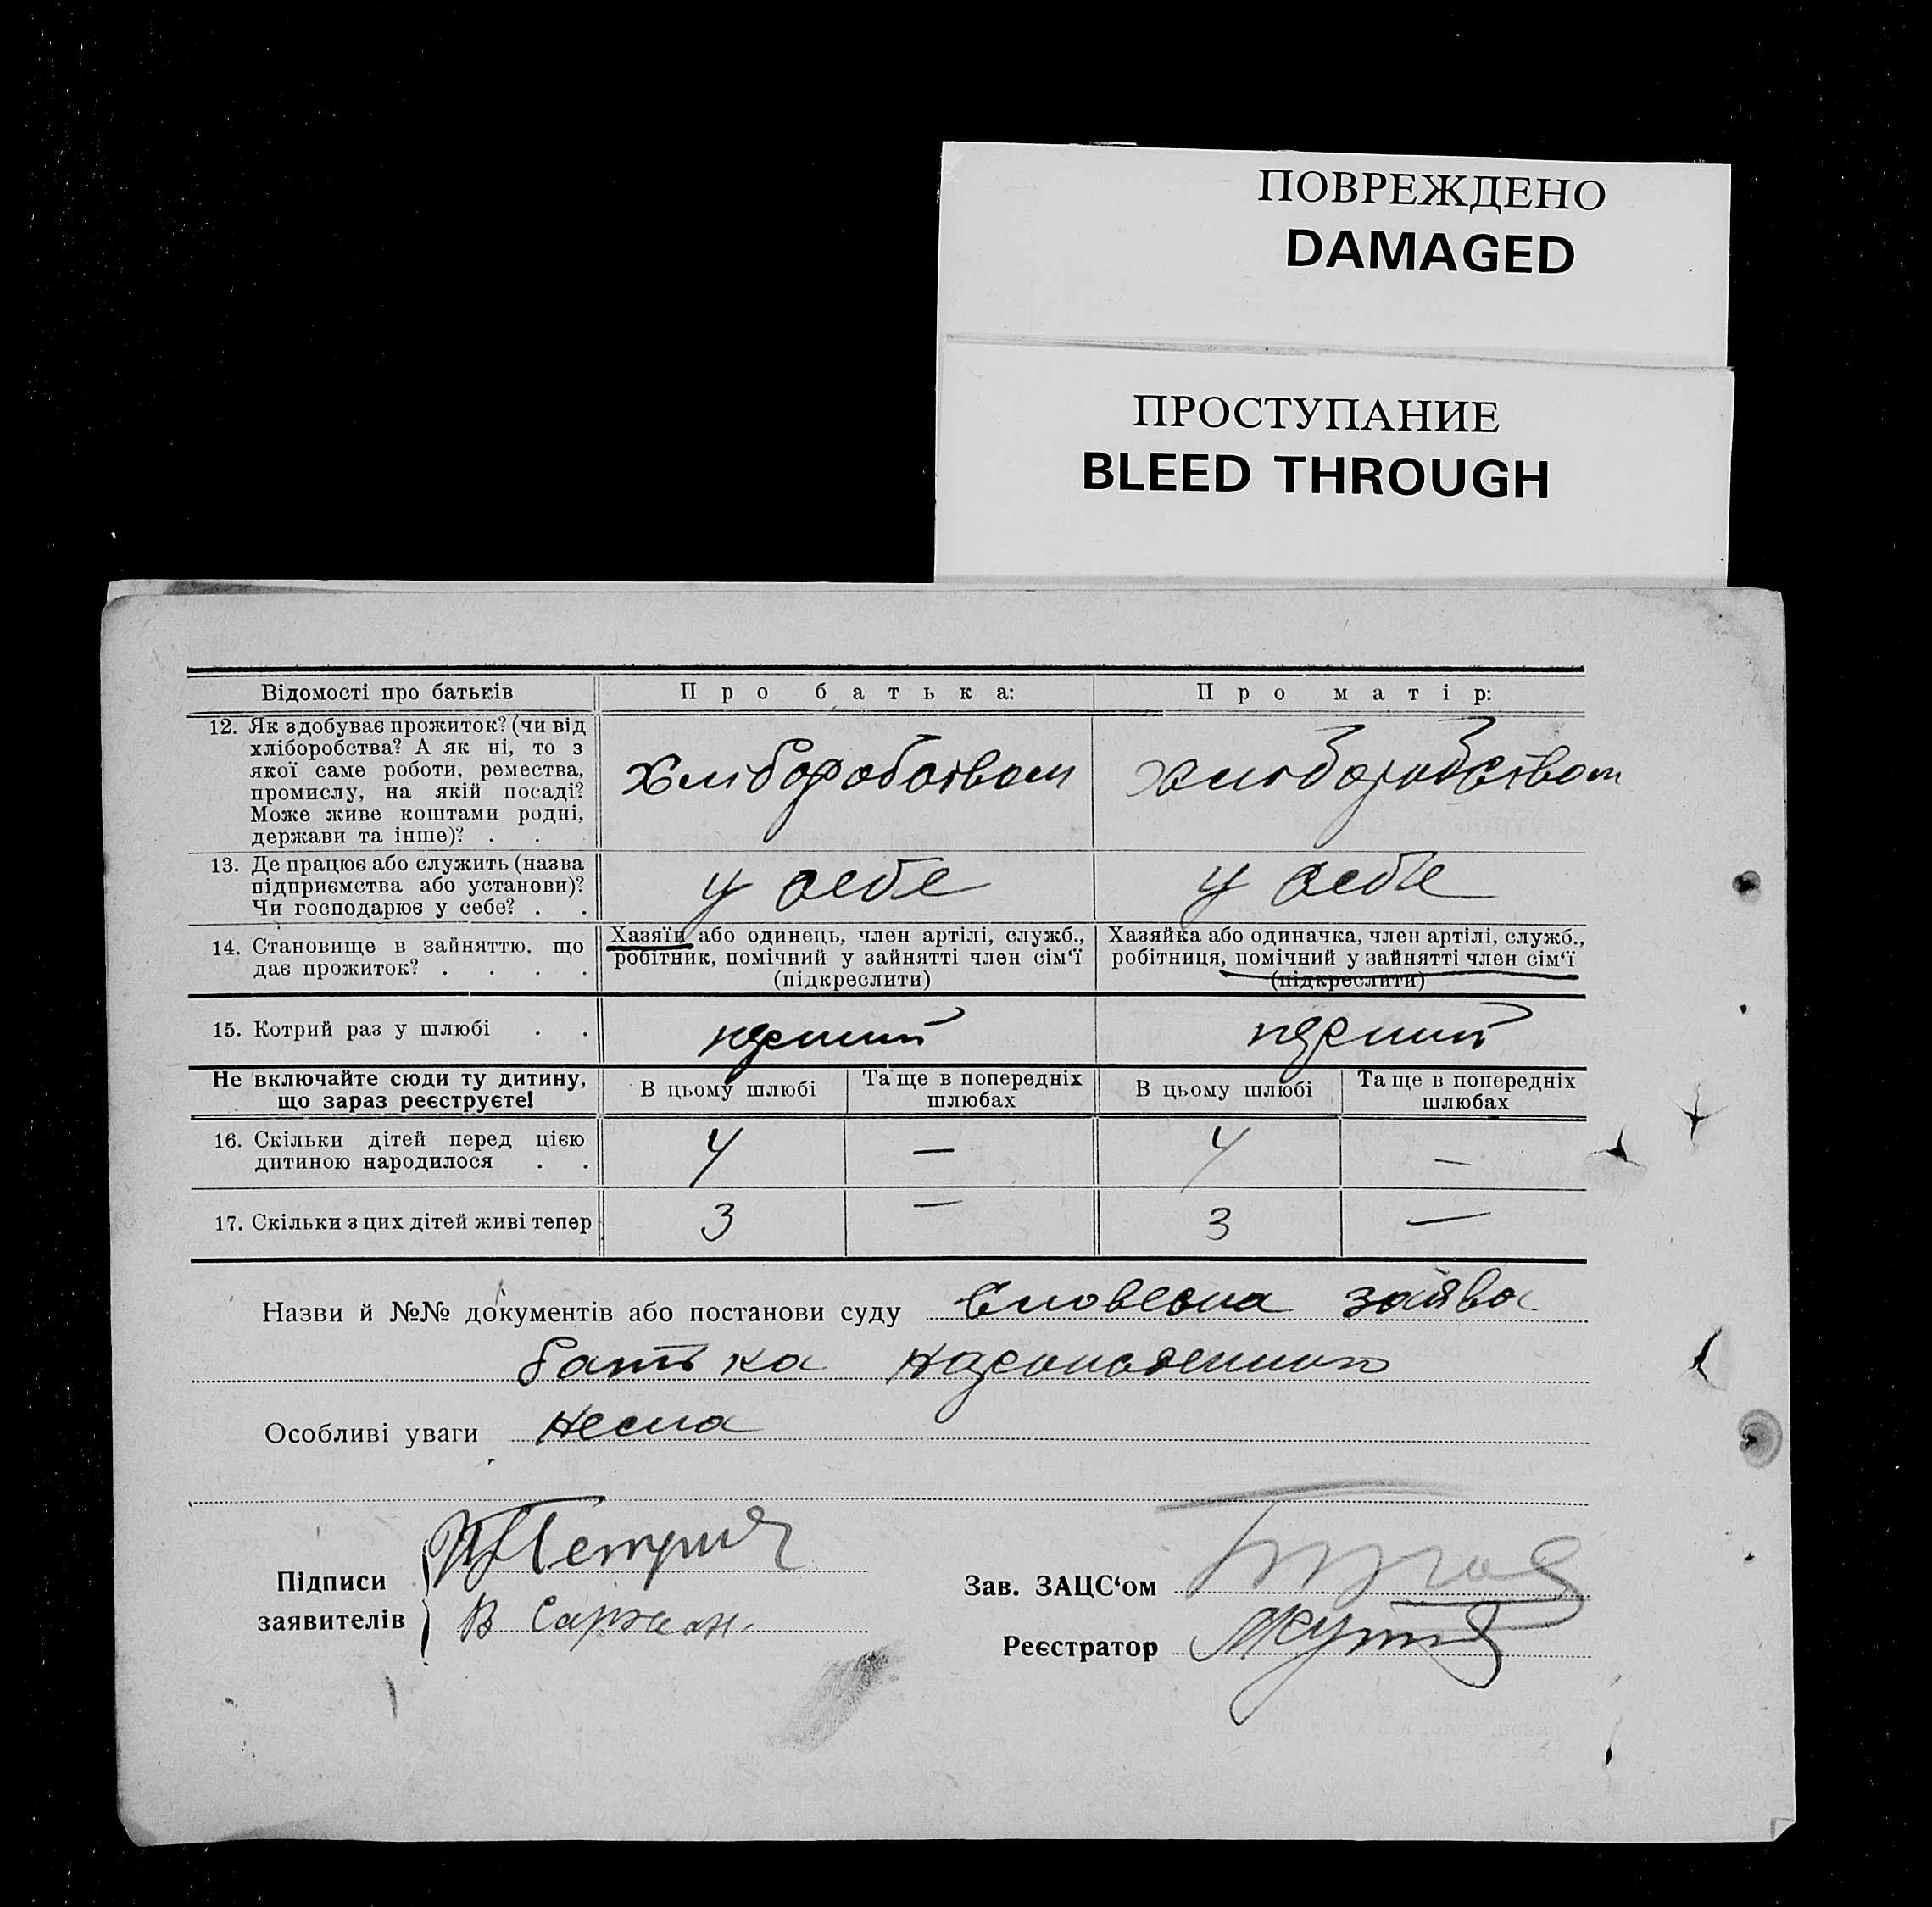 ПОВРЕЖДЕНО
DAMAGED
ПРОСТУПАНИЕ
BLEED THROUGH
Відомості про батьків
Про батька:
Про матір:
12. Як здобуває прожиток? (чи від
хліборобства? А як ні, то з
якої саме роботи, ремества,
промислу, на якій посаді?
Може живе коштами родні,
держави та інше)? . .
Хліборобством
Хліборобством
13. Де працює або служить (назва
підприємства або установи)?
Чи господарює у себе? . .
у себе
у себе
14. Становище в зайняттю, що
дає прожиток? . . . .
Хазяїн або одинець, член артілі, служб.,
робітник, помічний у зайнятті член сім‘ї
(підкреслити)
Хазяйка або одиначка, член артілі, служб.,
робітниця, помічний у зайнятті член сім‘ї
(підкреслити)
15. Котрий раз у шлюбі . .
перший
перший
Не включайте сюди ту дитину,
що зараз реєструєте!
В цьому шлюбі
Та ще в попередніх
шлюбах
В цьому шлюбі
Та ще в попередніх
шлюбах
16. Скільки дітей перед цією
дитиною народилося . .
4
—
4
—
17. Скільки з цих дітей живі тепер
3
—
3
—
Назви й №№ документів або постанови суду Словесна заява
батька
Особливі уваги Нема
Підписи
заявителів
В
Зав. ЗАЦС‘ом
Реєстратор